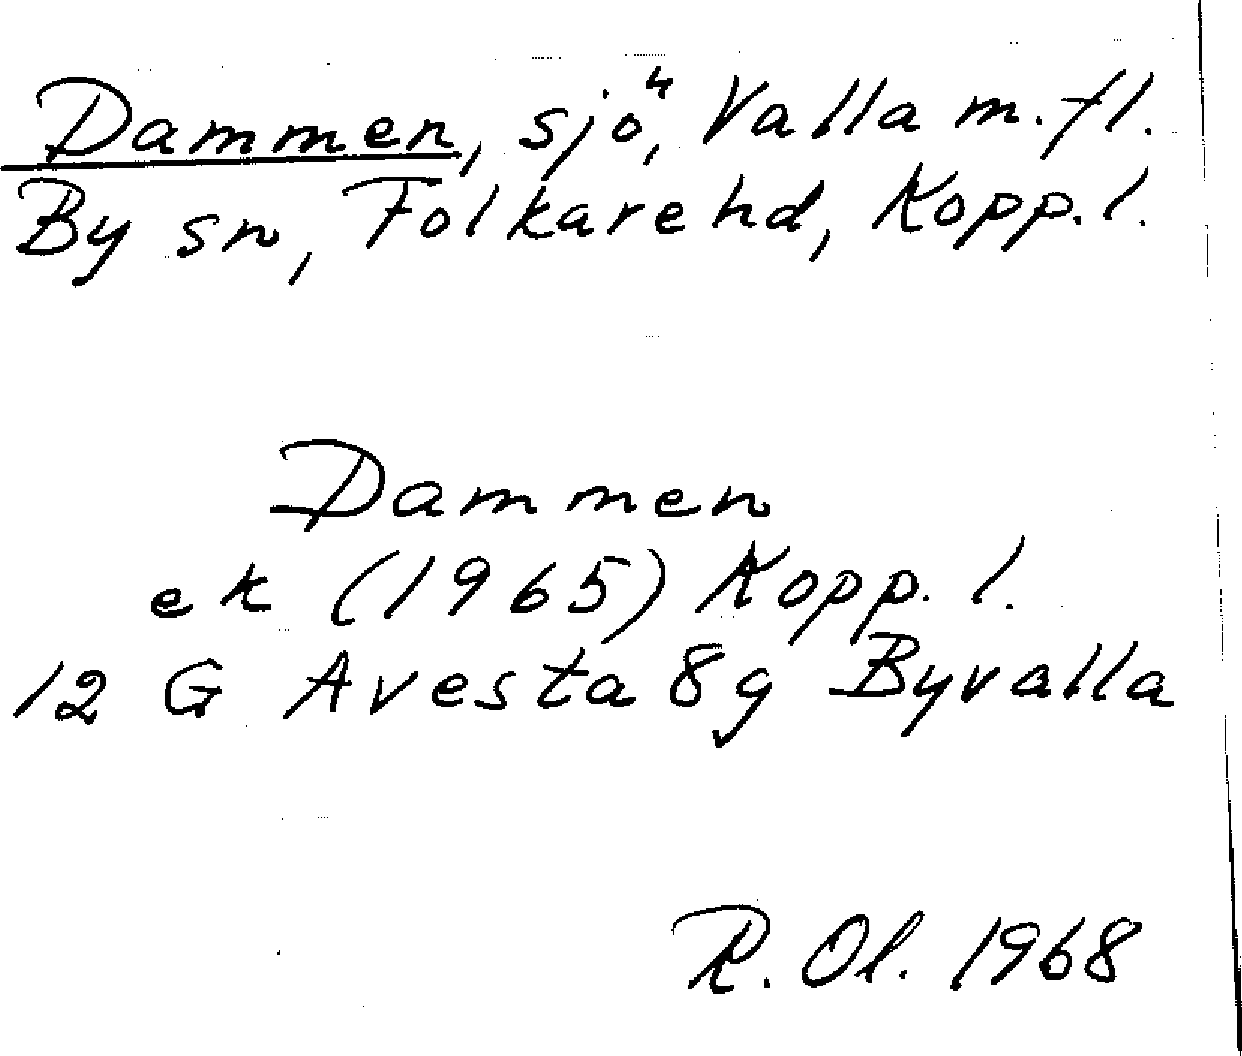 Dammen, sjö, Valla m.fl.
By sn, Folkarehd, Kopp.l.
Dammen
ek (1965) Kopp.l.
12 G Avesta 8g Byvalla
R. Ol. 1968